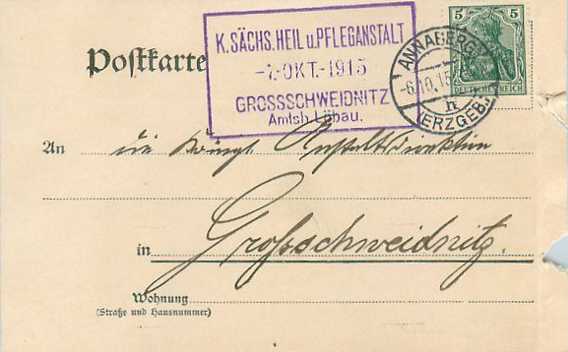 Postkarte
K. SÄCHS. HEIL u. PFLEGANSTALT
-7. OKT. -1915
GROSSSCHWEIDNITZ
Amtsh. Löbau.
ANNABERG
-6.10.15
h
(ERZGEB.)
5 5
DEUTSCHES REICH
An die Königl. Anstaltsdirektion
in Großschweidnitz.
Wohnung
(Straße und Hausnummer)